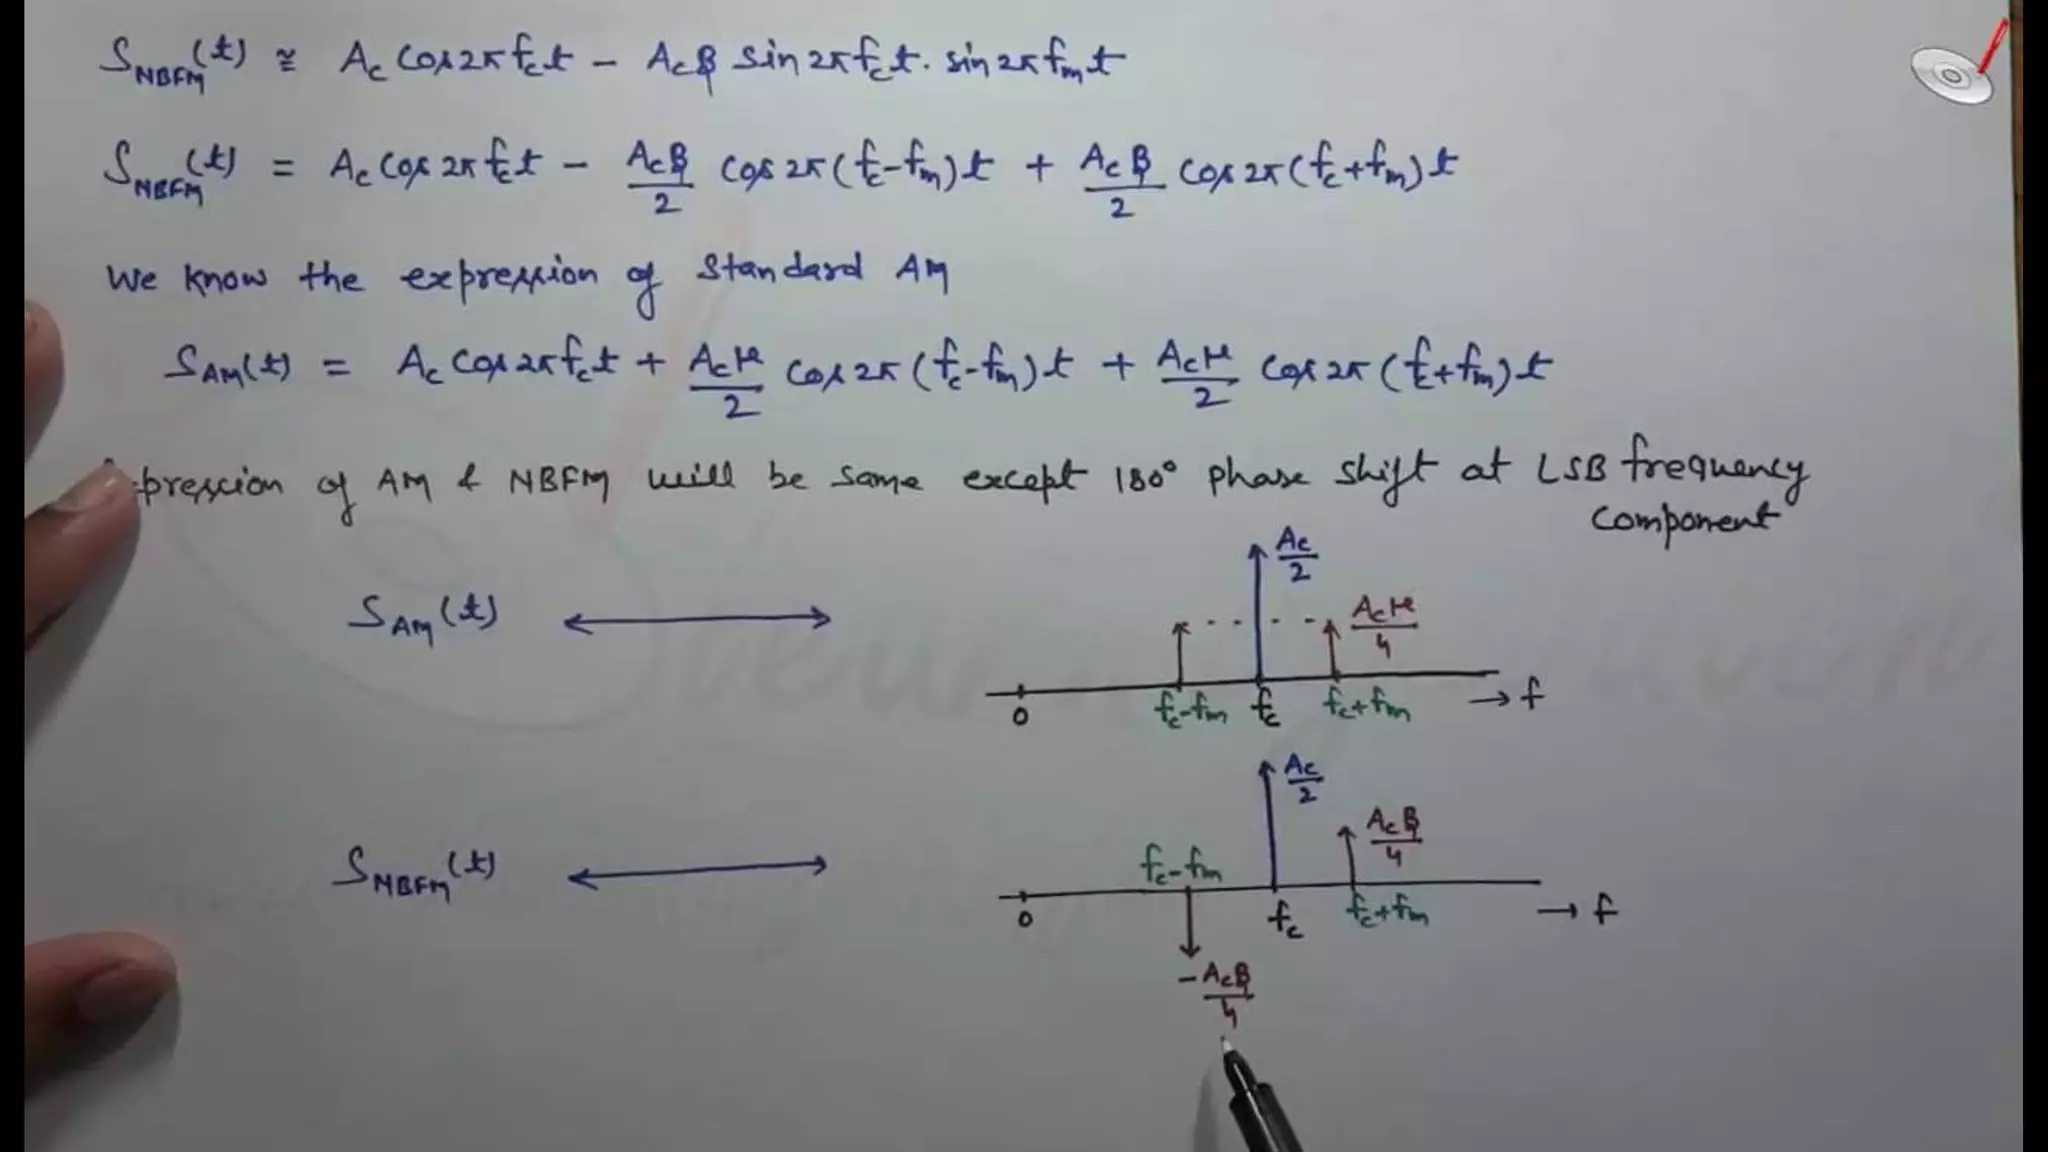 S_NBFM(t) ≅ Ac Cos2πfct − Acβ sin2πfct. sin2πfmt
S_NBFM(t) = Ac Cos2πfct − Acβ/2 Cos2π(fc-fm)t + Acβ/2 Cos2π(fc+fm)t
We know the expression of Standard AM
S_AM(t) = Ac Cos2πfct + Acμ/2 Cos2π(fc-fm)t + Acμ/2 Cos2π(fc+fm)t
pression of AM & NBFM will be same except 180° phase shift at LSB frequency
component
Ac/2
S_AM(t) ⟷ Acμ/4
0 fc-fm fc fc+fm → f
Ac/2
Acβ/4
S_NBFM(t) ⟷ fc-fm
0 fc fc+fm → f
-Acβ/4